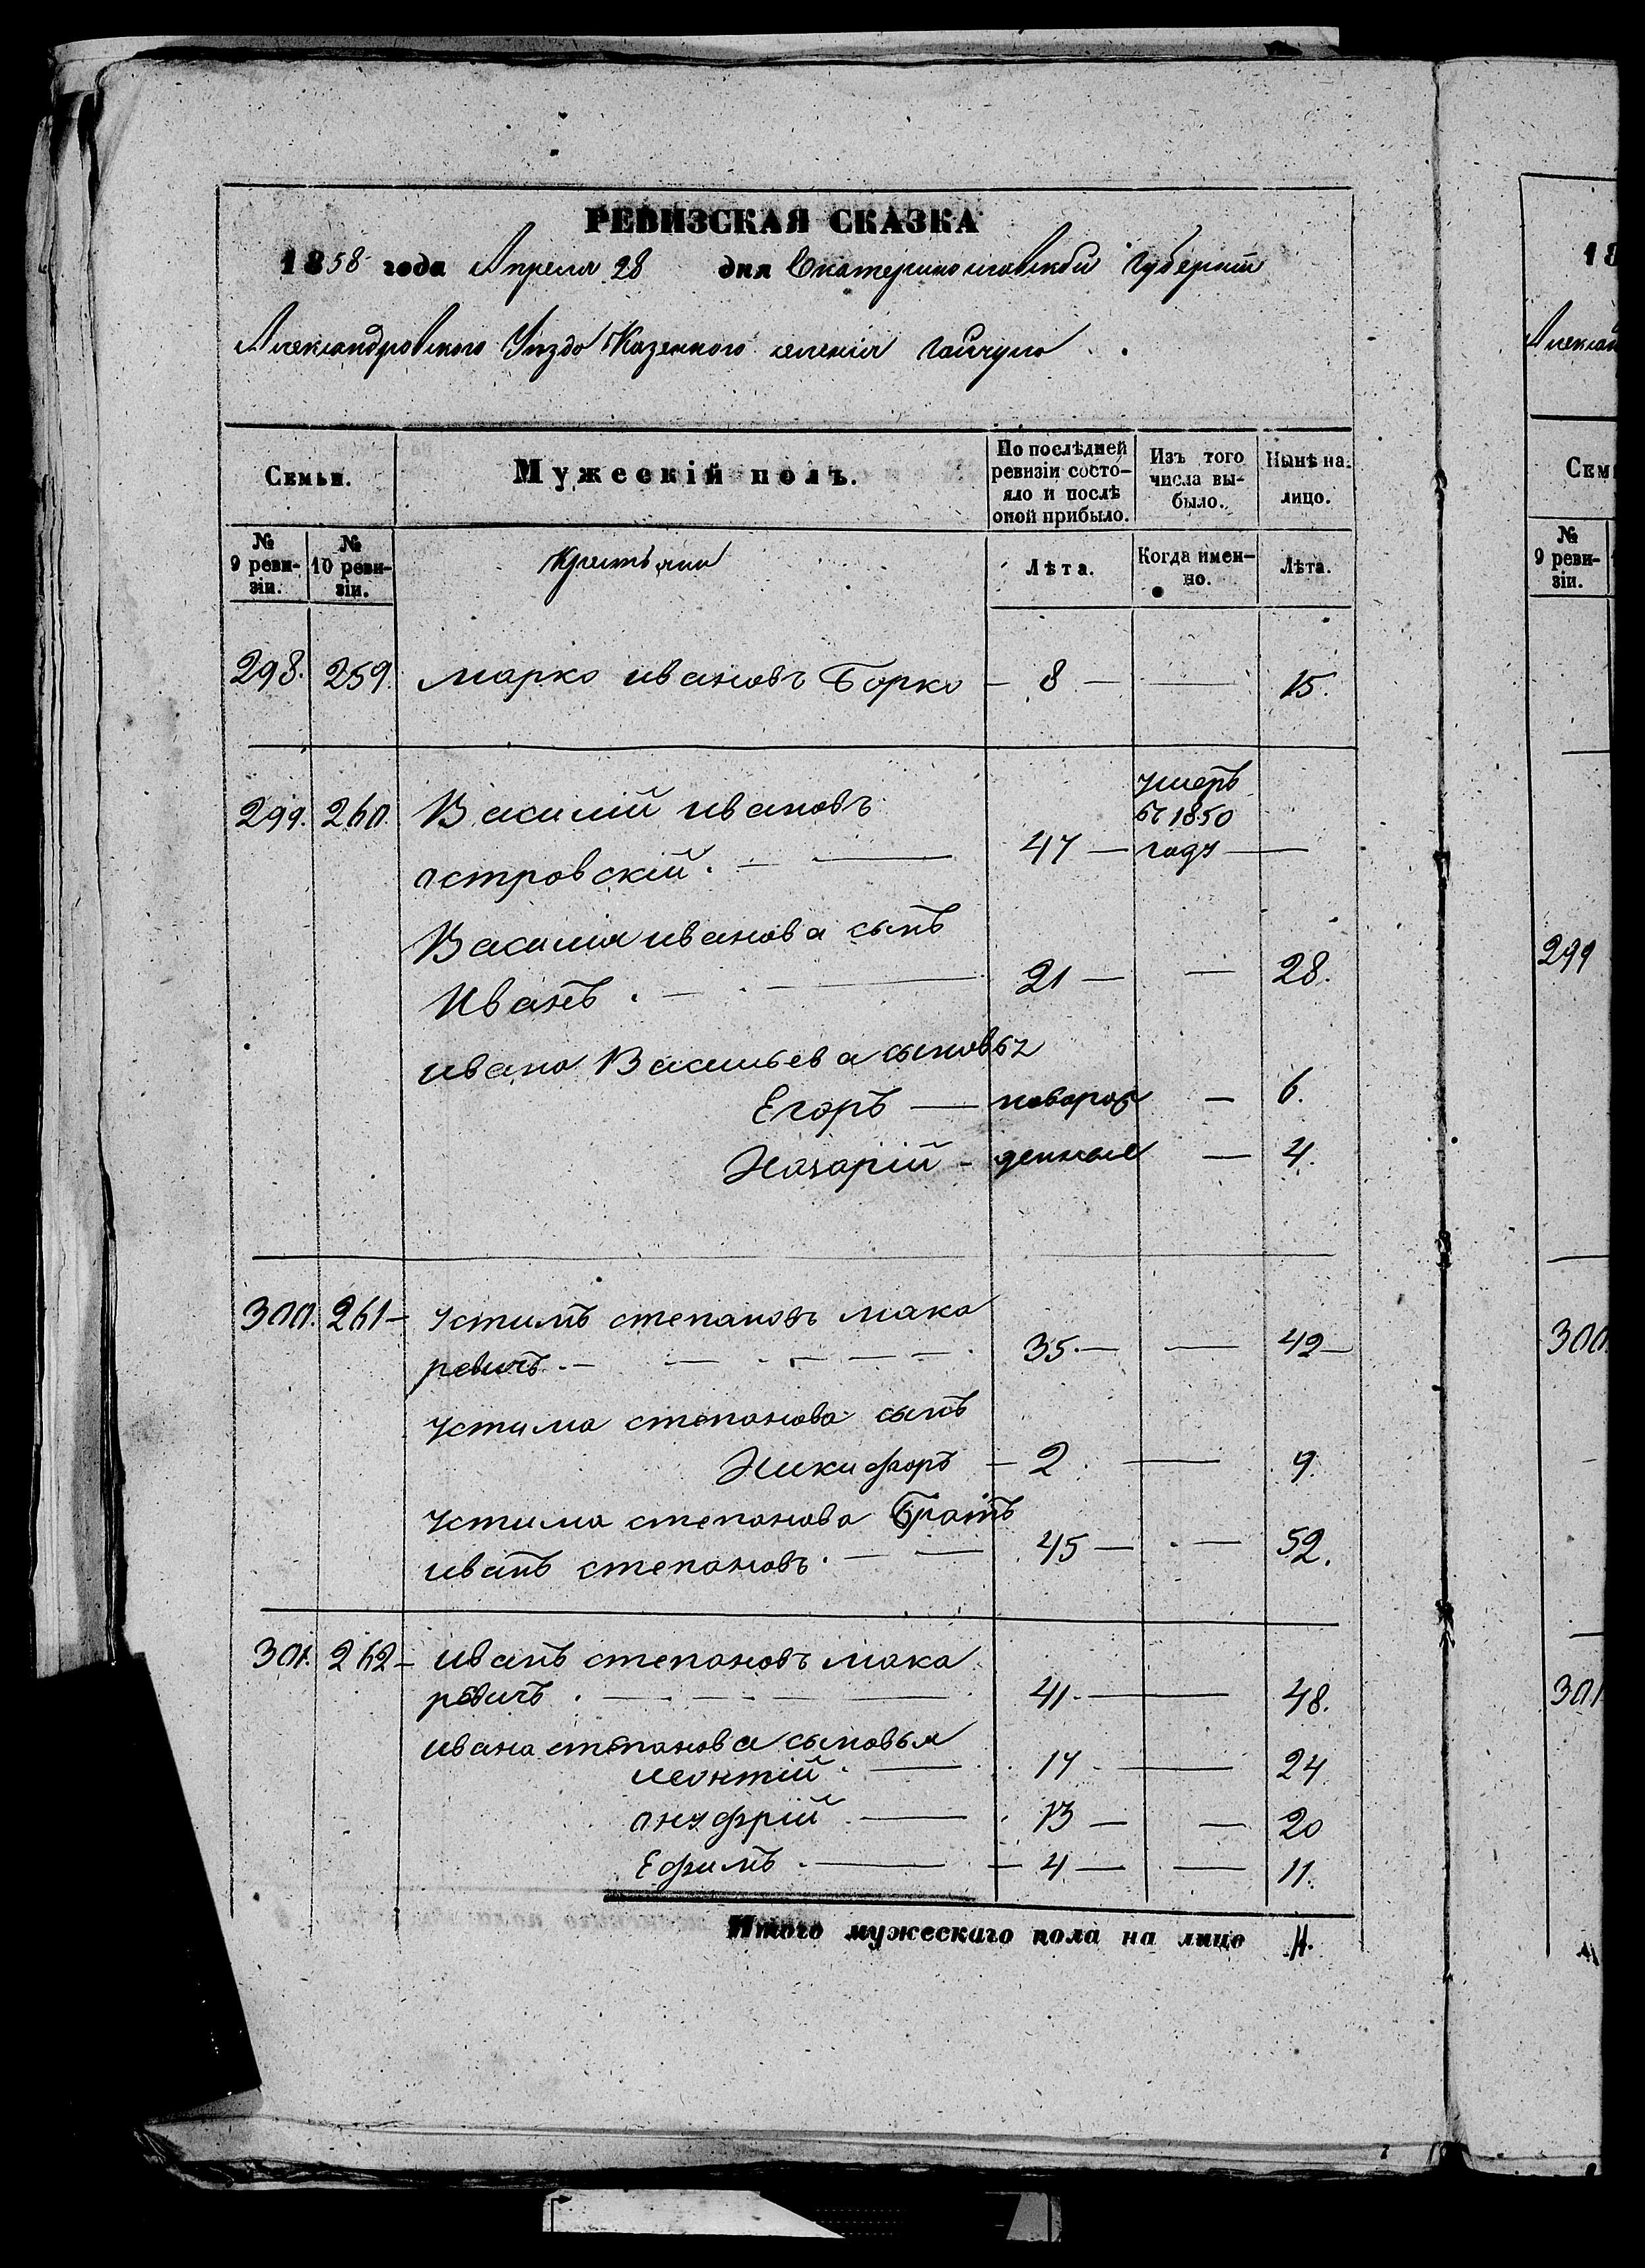 РЕВИЗСКАЯ СКАЗКА
1858 года Апреля 28 дня Екатеринославской Губернии
Александровского Уезда Казенного селенія Гайчула
Семьи.
Мужескій полъ.
По послѣдней ревизіи состо-
яло и послѣ
оной прибыло.
Изъ того
числа вы-
было.
Нынѣ на-
лицо.
№
9 реви-
зіи.
№
10 реви-
зіи.
Крестьяни
Лѣта.
Когда имен-
но.
Лѣта.
298. 259. марко ивановъ Борко - 8 - — 15.
умеръ
299. 260. Василій ивановъ въ 1850
островскій. - — 47 — году —
Василия иванова сынъ
Иванъ. - — 21 — — 28.
ивана Васильева сыновья
Егоръ — новорож — 6.
Назарій - денные — 4.
300. 261 - Устимъ степановъ мака
ревичъ. - — 35. — — 42 —
Устима степанова сынъ
Никифоръ - 2. — 9.
Устима степанова Братъ
иванъ степановъ. — — 45 — — 52.
301. 262 - иванъ степановъ мака
ревичъ. — 41. — — 48.
ивана степанова сыновья
леонтій. — 17 — 24
онуфрій. — 13 — — 20
Ефимъ. — 4 — — 11.
Итого мужескаго пола на лицо 11.
18
Алексан
Семь
№
9 реви-
зіи.
299
300
301